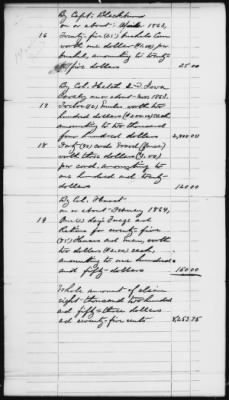 By Capt. Blackburn
on or about April 1863,
16 Twenty-five (25) bushels Corn
worth one dollar ($1.00) per
bushel, amounting to twenty
five dollars 25.00
By Col. 2nd Iowa
Cavalry on or about
17 Twelve (12) Mules worth two
hundred dollars ($200.00) each
amounting to two thousand
four hundred dollars 2,400.00
18 Forty (40) cords Wood
worth three dollars ($3.00)
per cord, amounting to
one hundred and twenty
dollars 120.00
By Col. Hurst
on or about February 1864,
19 One (1) day's forage and
Rations for seventy five
(75) Horses and men, worth
two dollars ($2.00) each,
amounting to one hundred
and fifty dollars 150.00
Whole amount of claim
eight thousand two hundred
and fifty three dollars
and seventy five cents 8,253.75